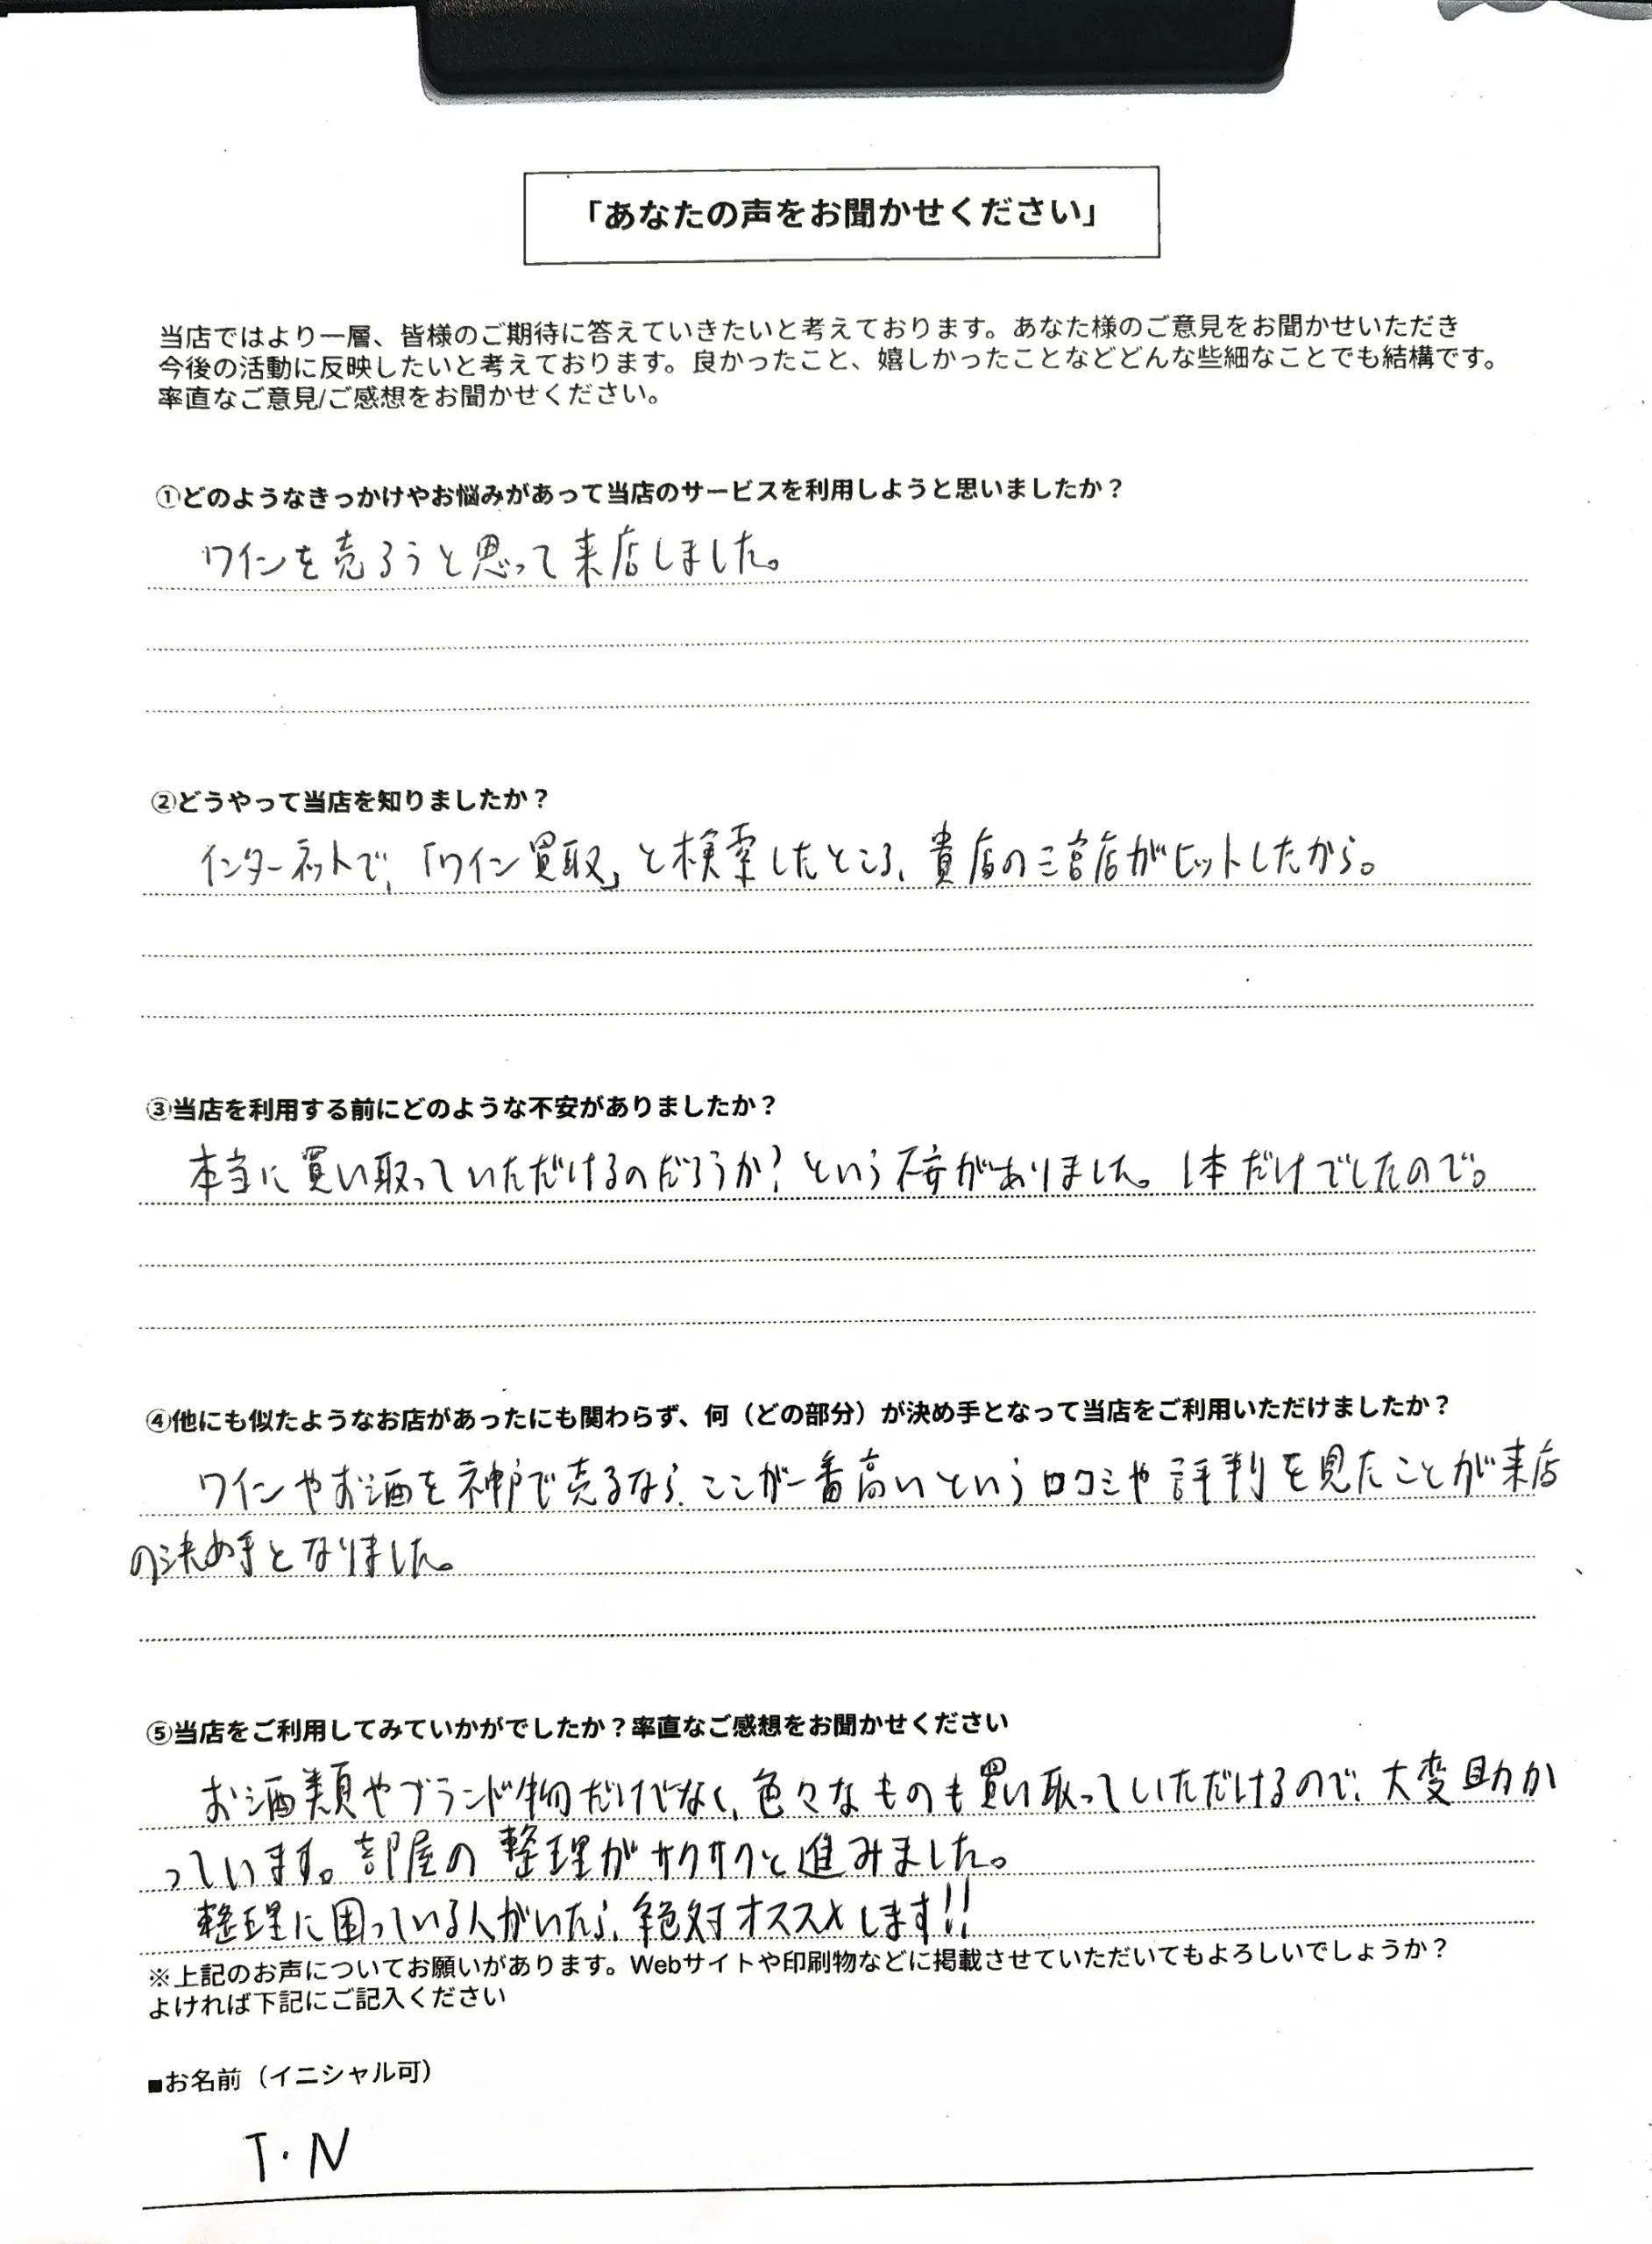 「あなたの声をお聞かせください」
当店ではより一層、皆様のご期待に答えていきたいと考えております。あなた様のご意見をお聞かせいただき
今後の活動に反映したいと考えております。良かったこと、嬉しかったことなどどんな些細なことでも結構です。
率直なご意見/ご感想をお聞かせください。
①どのようなきっかけやお悩みがあって当店のサービスを利用しようと思いましたか？
ワインを売ろうと思って来店しました。
②どうやって当店を知りましたか？
インターネットで、「ワイン買取」と検索したところ、貴店の三宮店がヒットしたから。
③当店を利用する前にどのような不安がありましたか？
本当に買い取っていただけるのだろうか？という不安がありました。1本だけでしたので。
④他にも似たようなお店があったにも関わらず、何（どの部分）が決め手となって当店をご利用いただけましたか？
ワインやお酒を神戸で売るなら、ここが一番高いという口コミや評判を見たことが来店
の決め手となりました。
⑤当店をご利用してみていかがでしたか？率直なご感想をお聞かせください
お酒類やブランド物だけでなく、色々なものも買い取っていただけるので、大変助か
っています。部屋の整理がサクサクと進みました。
整理に困っている人がいたら、絶対オススメします!!
※上記のお声についてお願いがあります。Webサイトや印刷物などに掲載させていただいてもよろしいでしょうか？
よければ下記にご記入ください
■お名前（イニシャル可）
T・N